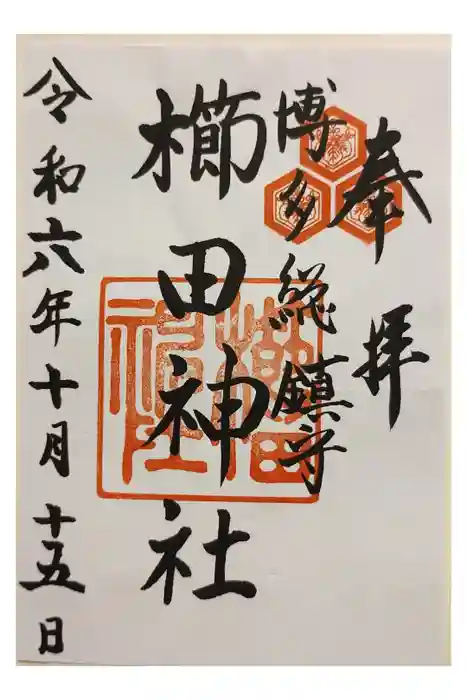 奉拝
博多総鎮守
櫛田神社
令和六年十月十五日
櫛田
神社